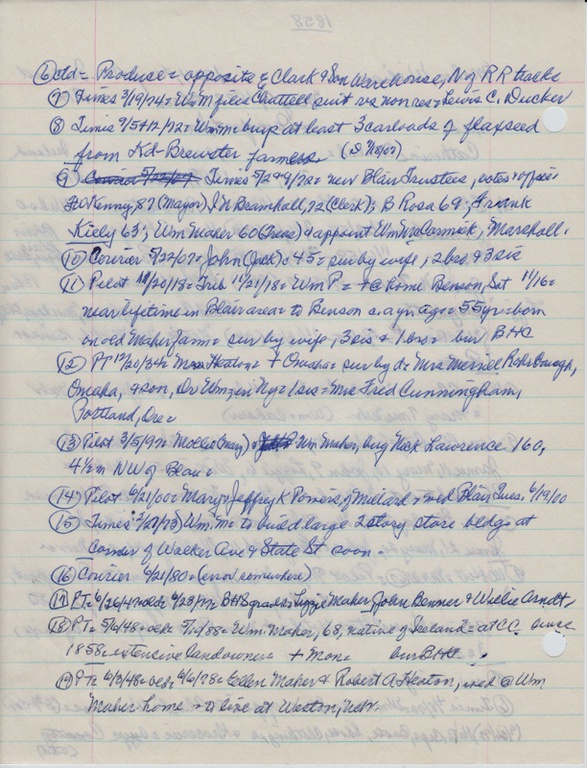 1858
⑥ ctd= Produce= opposite Clark & Son Warehouse, N of RR tracks
⑦ Times 3/19/74= WmM files Chattell suit vs non res= Lewis C. Ducker
⑧ Times 9/5+12/72= WmM= buys at least 3 carloads of flaxseed
from Kd-Brewster farmers
⑨ Times 5/2+9/72= new Blair Trustees, votes + offices
Kenny, 87 (Mayor) J N Bramhall, 72 (Clerk); B Rosa 69; Frank
Kiely 63; Wm Maher 60 (Treas) & appoint Wm McCormick, Marshall.
⑩ Courier 5/22/07= John (Jack)= 45= sur by wife, 2 bro + 3 sis
⑪ Pilot 11/20/18= Trib 11/21/18= Wm P= + @ home Benson, Sat 11/16=
near lifetime in Blair area= to Benson c. a yr ago= 55 yr= born
on old Maher farm= sur by wife, 3 sis & 1 bro= bur BHC
⑫ PT 12/20/34= Mrs Heaton= + Omaha= sur by d= Mrs Merril Rohrbough,
Omaha, & son, Dr Wm in Ny= 1 sis= Mrs Fred Cunningham,
Portland, Ore=
⑬ Pilot 3/5/92= Mollie (Mary) & Wm Maher, buy Nick Lawrence 160,
4½ m NW of Blair=
⑭ Pilot 6/21/00= Mary & Jeffrey K Powers of Millard= wed Blair Tues, 6/19/00
⑮ Times Wm M= to build large 2 story store bldg at
Corner of Walker Ave & State St soon=
⑯ Courier 6/21/80= (error somewhere)
⑰ PT= 6/26/47= BHS grads= Lizzie Maher, John Benner & Willie Arndt,
⑱ PT= 5/6/48= Wm Maher, 68, native of Ireland= at CC since
1858= extensive landowner + Mon= bur BHC
⑲ PT= 6/3/48= Ellen Maher & Robert A Heaton, wed @ Wm
Maher home= to live at Weston, Nebr.